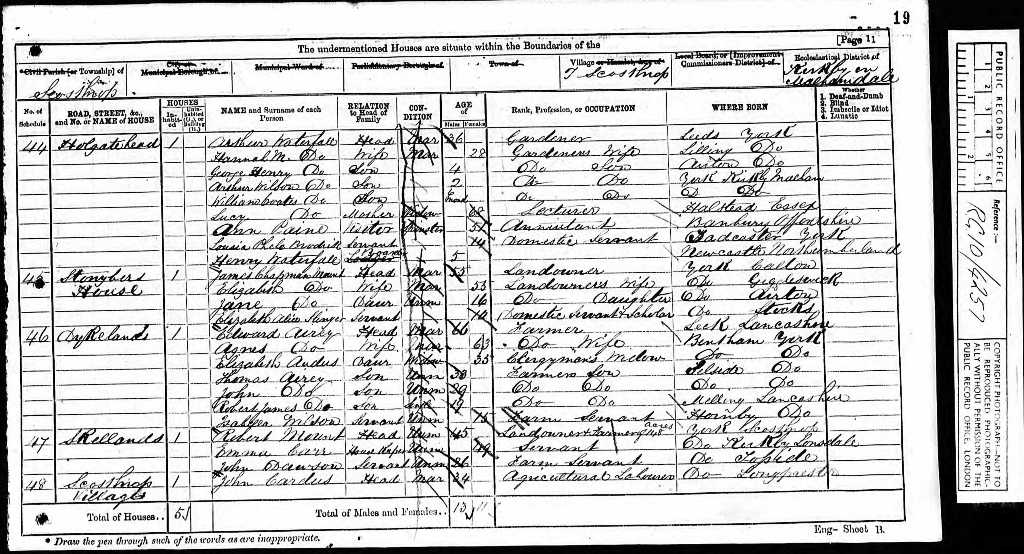 19
[Page 11
The undermentioned Houses are situate within the Boundaries of the
Civil Parish [or Township] of
City or Municipal Borough of
Municipal Ward of
Parliamentary Borough of
Town of
Village or Hamlet, &c., of
Local Board, or [Improvement Commissioners District] of
Ecclesiastical District of
Scosthrop
Scosthrop
Kirkby in Malhamdale
No. of Schedule
ROAD, STREET, &c., and No. or NAME of HOUSE
HOUSES
Inhabited
Uninhabited (U.), or Building (B.)
NAME and Surname of each Person
RELATION to Head of Family
CONDITION
AGE of
Males
Females
Rank, Profession, or OCCUPATION
WHERE BORN
Whether
1. Deaf-and-Dumb
2. Blind
3. Imbecile or Idiot
4. Lunatic
44 Holgatehead 1 Arthur Waterfall Head Mar 36 Gardener Leeds York
Hannah M. Do Wife Mar 28 Gardeners Wife Do
George Henry Do Son 4 Do Son Airton Do
Arthur Wilson Do Son 2 Do Do York Kirkby Malham
William Do Son Do Do Do Do
Lucy Do Mother Widow 68 Lecturer Halstead Essex
Ann Paine Visitor 51 Annuitant Banbury
Louisa Servant 14 Domestic Servant Tadcaster York
Henry Waterfall Boarder 5 Newcastle Northumberland
45 Stonybers House 1 James Chapman Mount Head Mar 55 Landowner York Calton
Elizabeth Do Wife Mar 53 Landowners Wife Do Giggleswick
Jane Do Daur Unm 16 Do Daughter Do Airton
Elizabeth Alice Servant 14 Domestic Servant & Scholar Do
46 Dykelands 1 Edward Airey Head Mar 66 Farmer Leck Lancashire
Agnes Do Wife Mar 63 Do Wife Bentham York
Elizabeth Daur Widow 35 Clergyman's Widow Do Do
Thomas Airey Son Unm 38 Farmers Son Selside Do
John Do Son Unm 29 Do Do Do Do
Robert James Do Son Do Do Melling Lancashire
Wilson Servant Unm 15 Farm Servant Hornby Do
47 Skellands 1 Robert Mount Head Unm 45 Landowner & Farmer of 148 acres York Scosthrop
Emma Carr House Keeper Unm Servant Do Kirkby Lonsdale
John Dawson Servant Unm 26 Farm Servant Do
48 Scosthrop Village 1 John Cardus Head Mar 34 Agricultural Labourer Do Long Preston
Total of Houses.. 5
Total of Males and Females.. 13 11
* Draw the pen through such of the words as are inappropriate.
Eng- Sheet B.
PUBLIC RECORD OFFICE
1 2 3 4 5 6
Reference :-
RG 10/4257
COPYRIGHT PHOTOGRAPH—NOT TO BE REPRODUCED PHOTOGRAPHICALLY WITHOUT PERMISSION OF THE PUBLIC RECORD OFFICE, LONDON